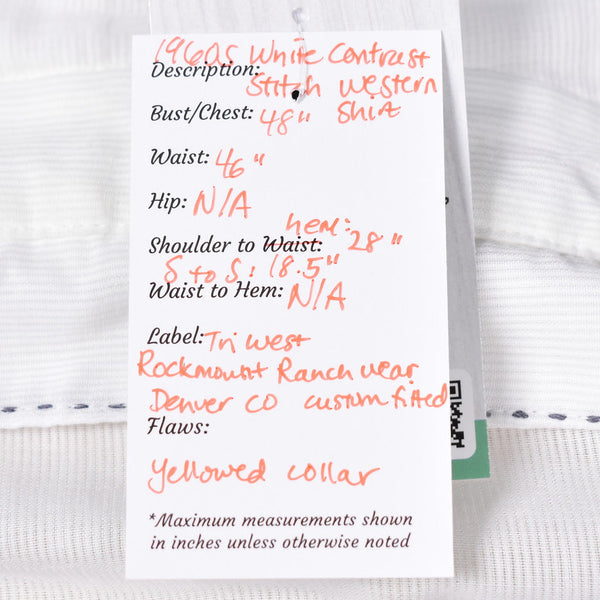 1960s White Contrast
Description:
Stitch Western
Bust/Chest: 48" Shirt
Waist: 46"
Hip: N/A
hem:
Shoulder to Waist: 28"
S to S: 18.5"
Waist to Hem: N/A
Label: Tri West
Rockmount Ranch wear
Denver CO custom fitted
Flaws:
yellowed collar
*Maximum measurements shown
in inches unless otherwise noted